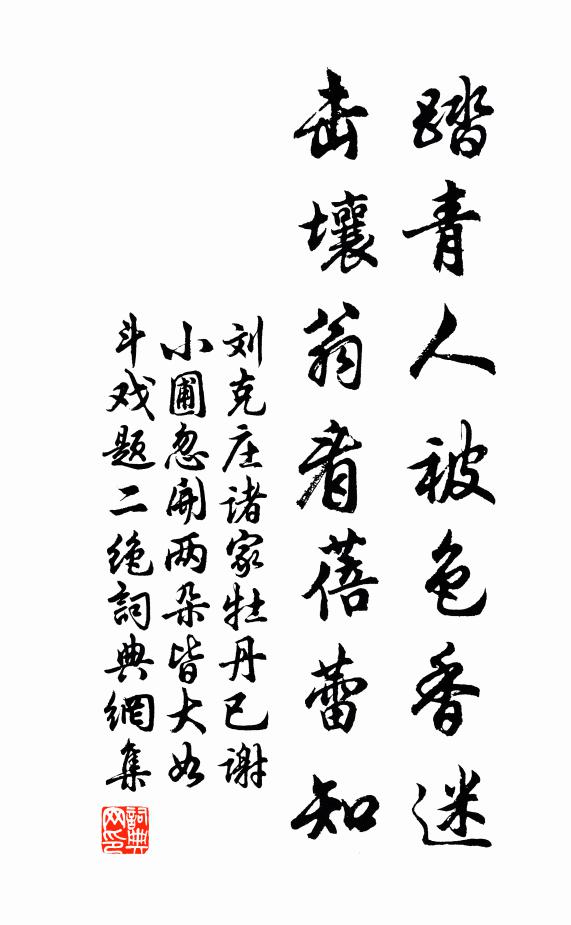 踏青人被色香迷
击壤翁看蓓蕾知
刘克庄诸家牡丹已谢
小圃忽开两朵皆大如
斗戏题二绝词典网集
詞典网印